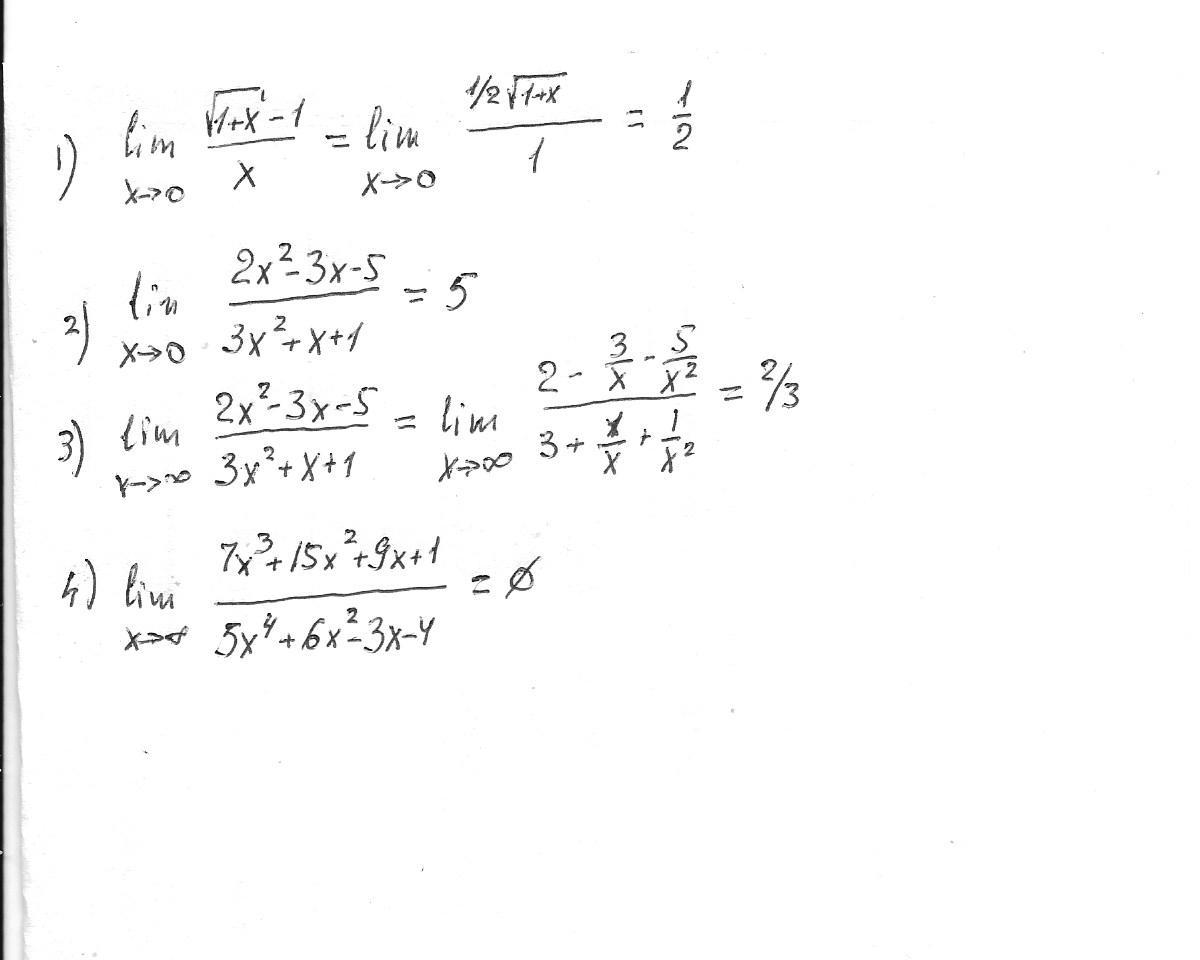 1) lim x→0 (√(1+x) - 1)/x = lim x→0 (1/2√(1+x))/1 = 1/2
2) lim x→0 (2x² - 3x - 5)/(3x² + x + 1) = 5
3) lim x→∞ (2x² - 3x - 5)/(3x² + x + 1) = lim x→∞ (2 - 3/x - 5/x²)/(3 + x/x + 1/x²) = 2/3
4) lim x→∞ (7x³ + 15x² + 9x + 1)/(5x⁴ + 6x² - 3x - 4) = ∅